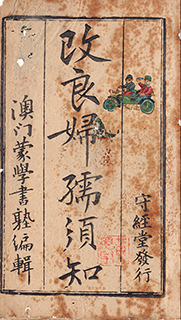 守經堂發行
改良婦孺須知
澳门蒙學書塾編輯